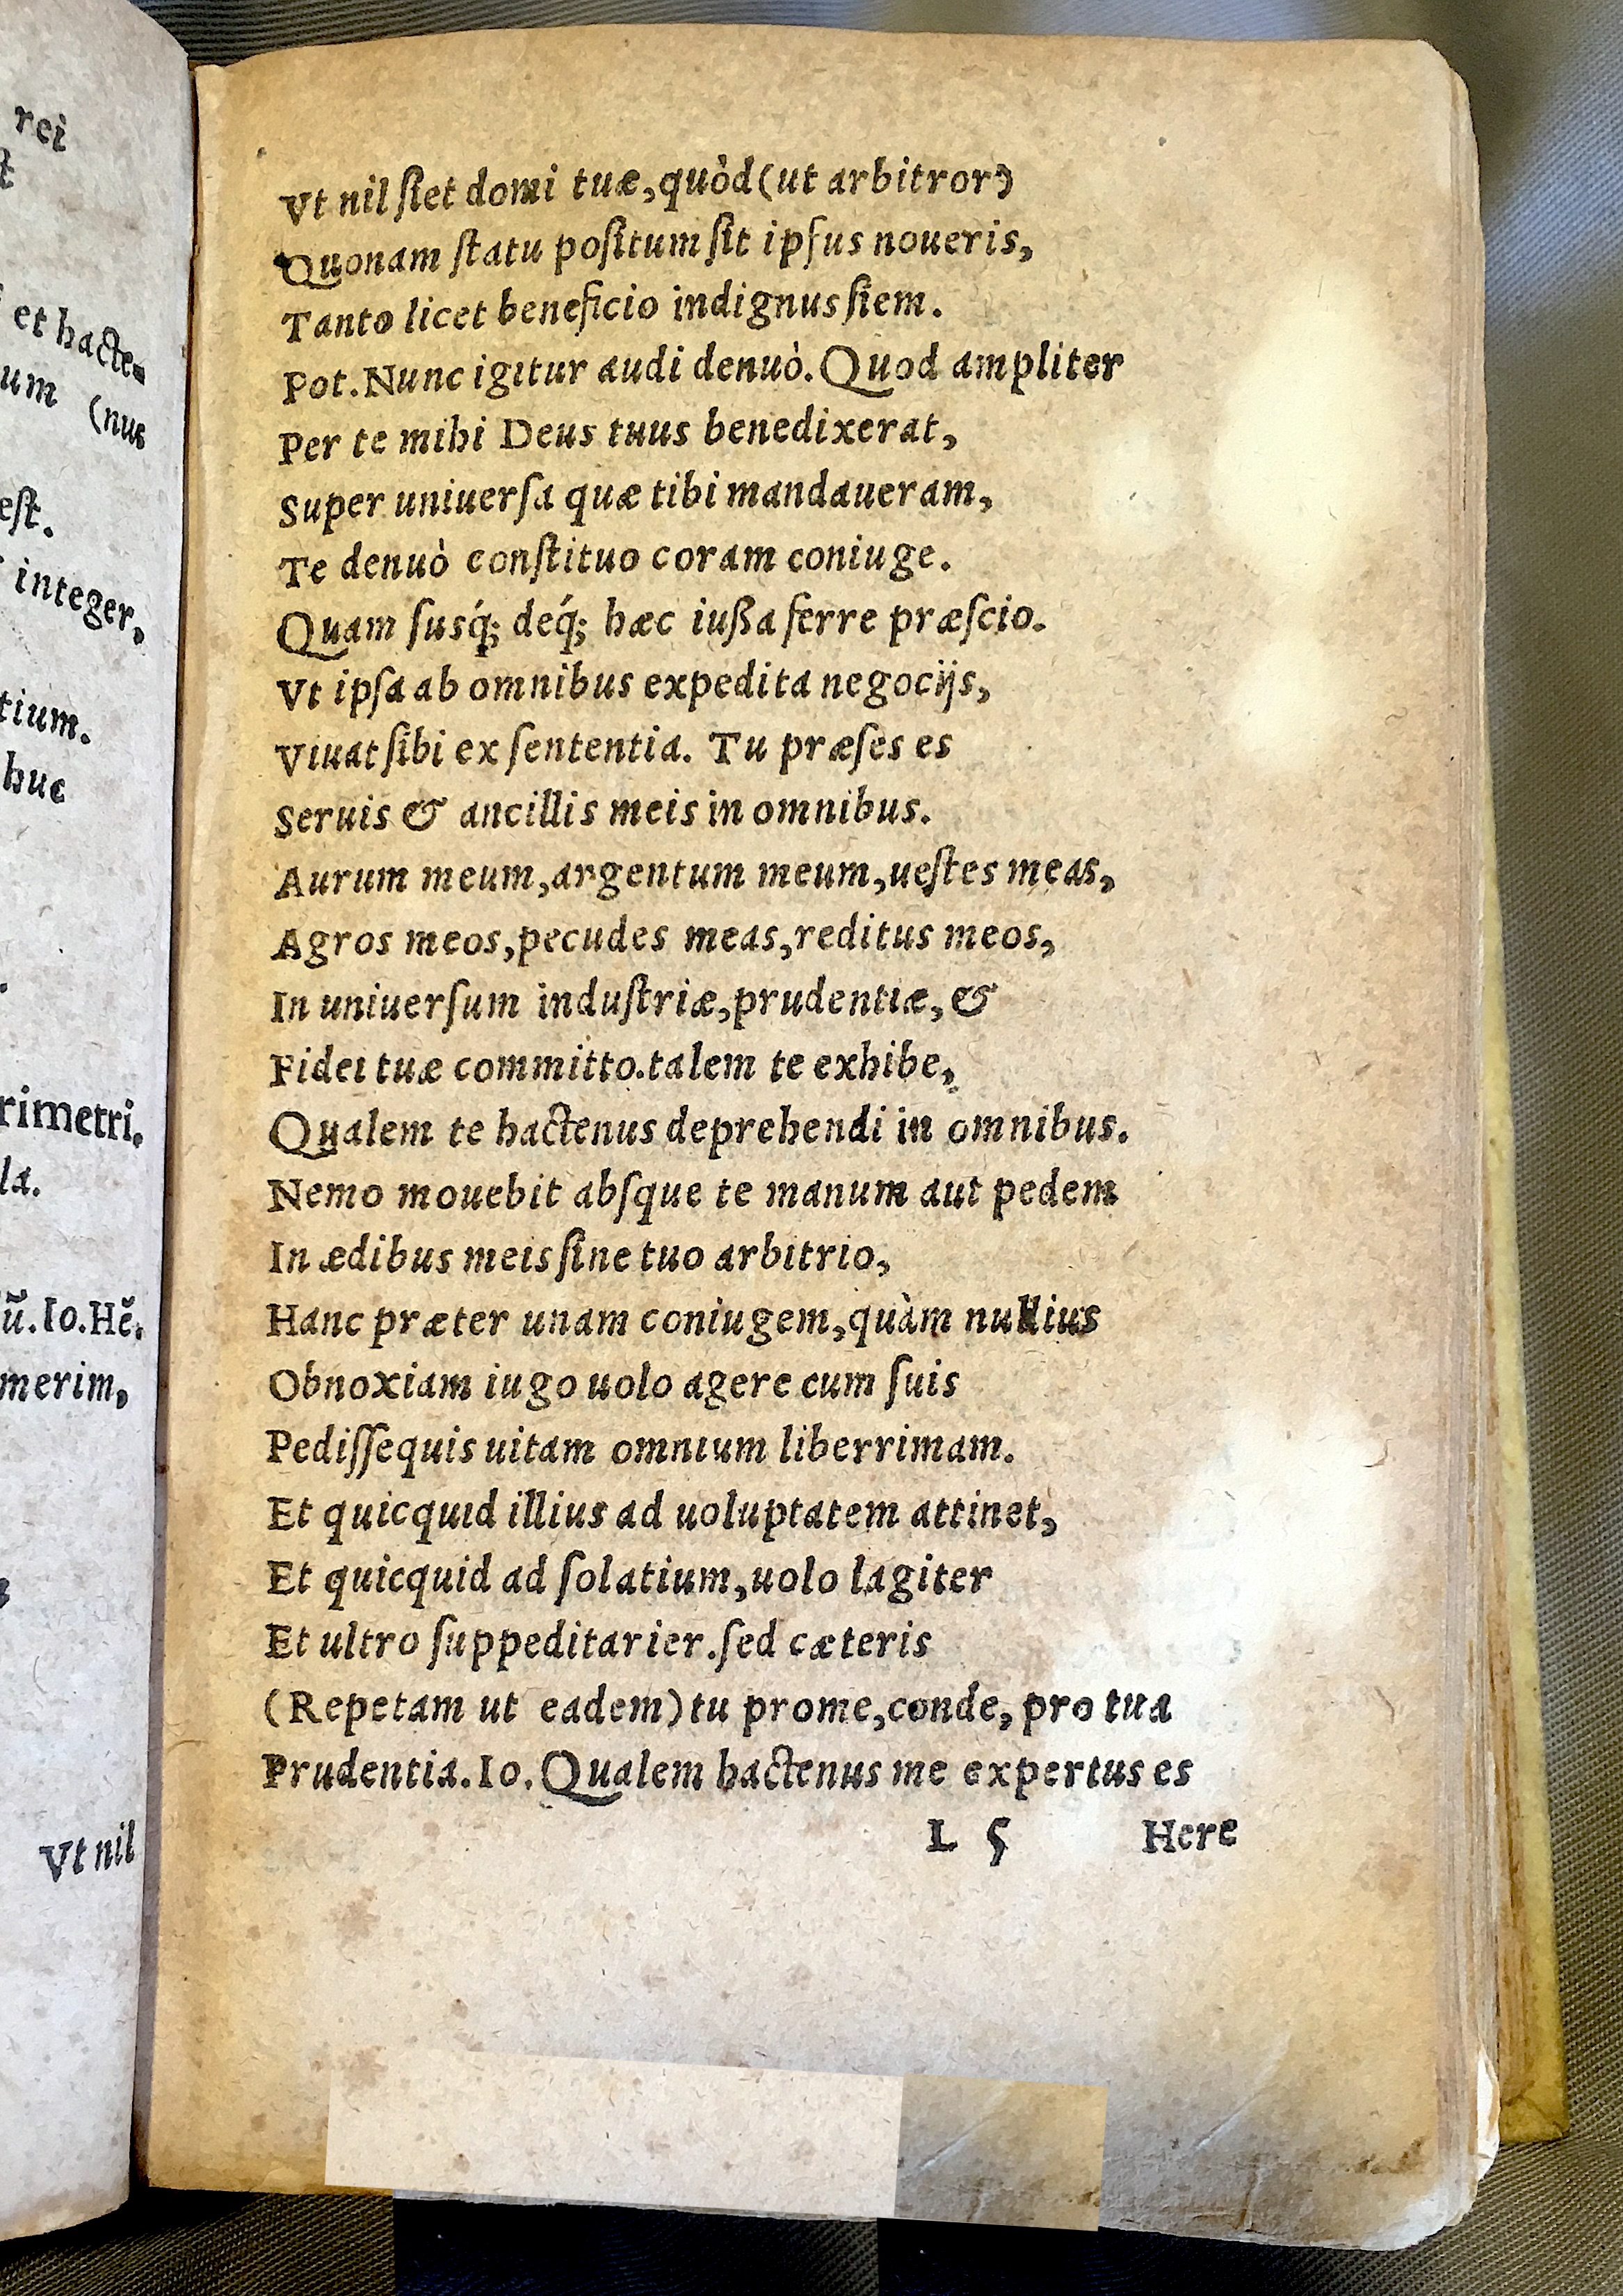 rei
et hacte-
um (nus
est.
integer,
tium.
huc
rimetri.
la.
ũ. Io. Hē.
merim,
Vt nil
Vt nil siet domi tuæ, quòd (ut arbitror)
Quonam statu positum sit ipsus noueris,
Tanto licet beneficio indignus siem.
Pot. Nunc igitur audi denuò. Quod ampliter
Per te mihi Deus tuus benedixerat,
Super uniuersa quæ tibi mandaueram,
Te denuò constituo coram coniuge.
Quam susq́; deq́; hæc iußa ferre præscio.
Vt ipsa ab omnibus expedita negocijs,
Viuat sibi ex sententia. Tu præses es
Seruis & ancillis meis in omnibus.
Aurum meum, argentum meum, uestes meas,
Agros meos, pecudes meas, reditus meos,
In uniuersum industriæ, prudentiæ, &
Fidei tuæ committo. talem te exhibe,
Qualem te hactenus deprehendi in omnibus.
Nemo mouebit absque te manum aut pedem
In ædibus meis sine tuo arbitrio,
Hanc præter unam coniugem, quàm nullius
Obnoxiam iugo uolo agere cum suis
Pedissequis uitam omnium liberrimam.
Et quicquid illius ad uoluptatem attinet,
Et quicquid ad solatium, uolo lagiter
Et ultro suppeditarier. sed cæteris
(Repetam ut eadem) tu prome, conde, pro tua
Prudentia. Io. Qualem hactenus me expertus es
L 5 Here